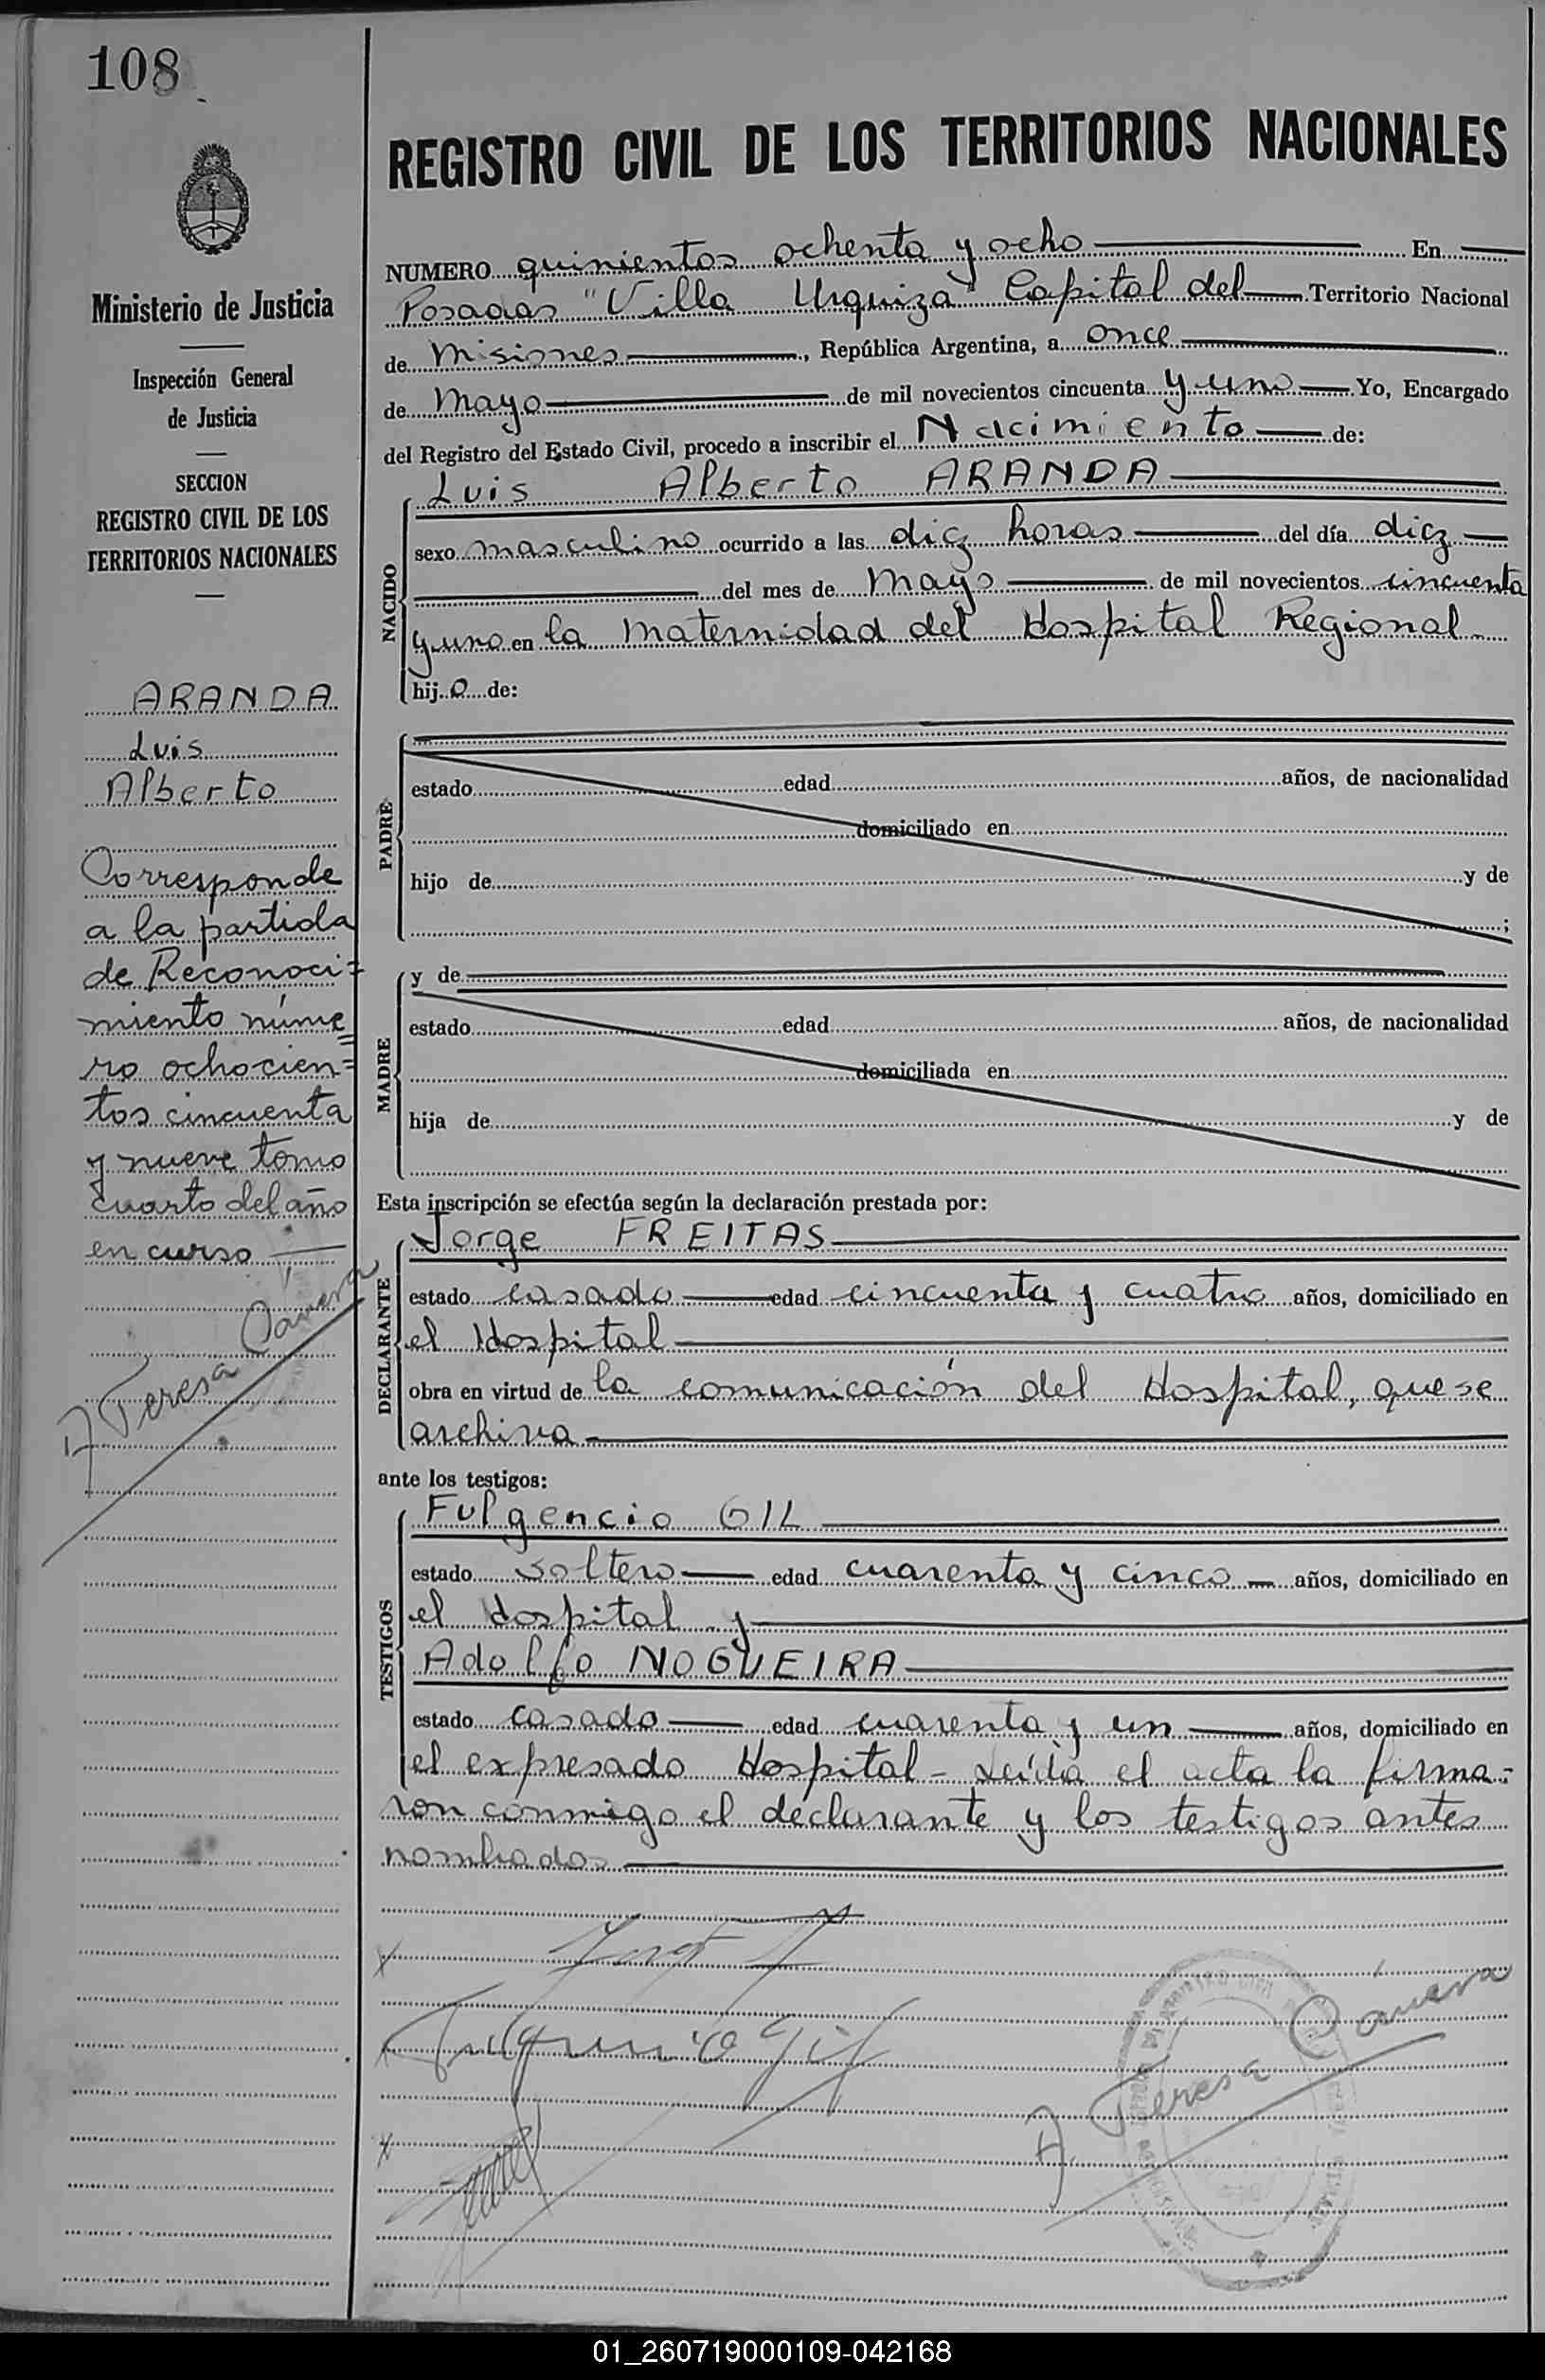 108
Ministerio de Justicia
Inspección General
de Justicia
SECCION
REGISTRO CIVIL DE LOS
TERRITORIOS NACIONALES
ARANDA
Luis
Alberto
Corresponde
a la partida
de Reconoci=
miento núme
ro ochocien=
tos cincuenta
y nueve tomo
cuarto del año
en curso
A Teresa
REGISTRO CIVIL DE LOS TERRITORIOS NACIONALES
NUMERO quinientos ochenta y ocho En
Posadas "Villa Urquiza" Capital del Territorio Nacional
de Misiones, República Argentina, a once
de Mayo de mil novecientos cincuenta y uno Yo, Encargado
del Registro del Estado Civil, procedo a inscribir el Nacimiento de:
NACIDO
Luis Alberto ARANDA
sexo masculino ocurrido a las diez horas del día diez
del mes de Mayo de mil novecientos cincuenta
y uno en la Maternidad del Hospital Regional
hijo de:
PADRE
estado edad años, de nacionalidad
domiciliado en
hijo de y de
;
MADRE
y de
estado edad años, de nacionalidad
domiciliada en
hija de y de
Esta inscripción se efectúa según la declaración prestada por:
DECLARANTE
Jorge FREITAS
estado casado edad cincuenta y cuatro años, domiciliado en
el Hospital
obra en virtud de la comunicación del Hospital, que se
archiva
ante los testigos:
TESTIGOS
Fulgencio GIL
estado soltero edad cuarenta y cinco años, domiciliado en
el Hospital y
Adolfo NOGUEIRA
estado casado edad cuarenta y un años, domiciliado en
el expresado Hospital - Leída el acta la firma=
ron conmigo el declarante y los testigos antes
nombrados
Fulgencio Gil
A Teresa
01_260719000109-042168